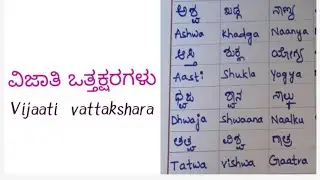 ವಿಜಾತಿ ಒತ್ತಕ್ಷರಗಳು
Vijaati vattakshara
ಅಶ್ವ ಖಡ್ಗ ನಾಣ್ಯ
Ashwa Khadga Naanya
ಆಸ್ತಿ ಶುಕ್ಲ ಯೋಗ್ಯ
Aasti Shukla Yogya
ಧ್ವಜ ಶ್ವಾನ ನಾಲ್ಕು
Dhwaja Shwaana Naalku
ತತ್ವ ವಿಶ್ವ ಗಾತ್ರ
Tatwa vishwa Gaatra